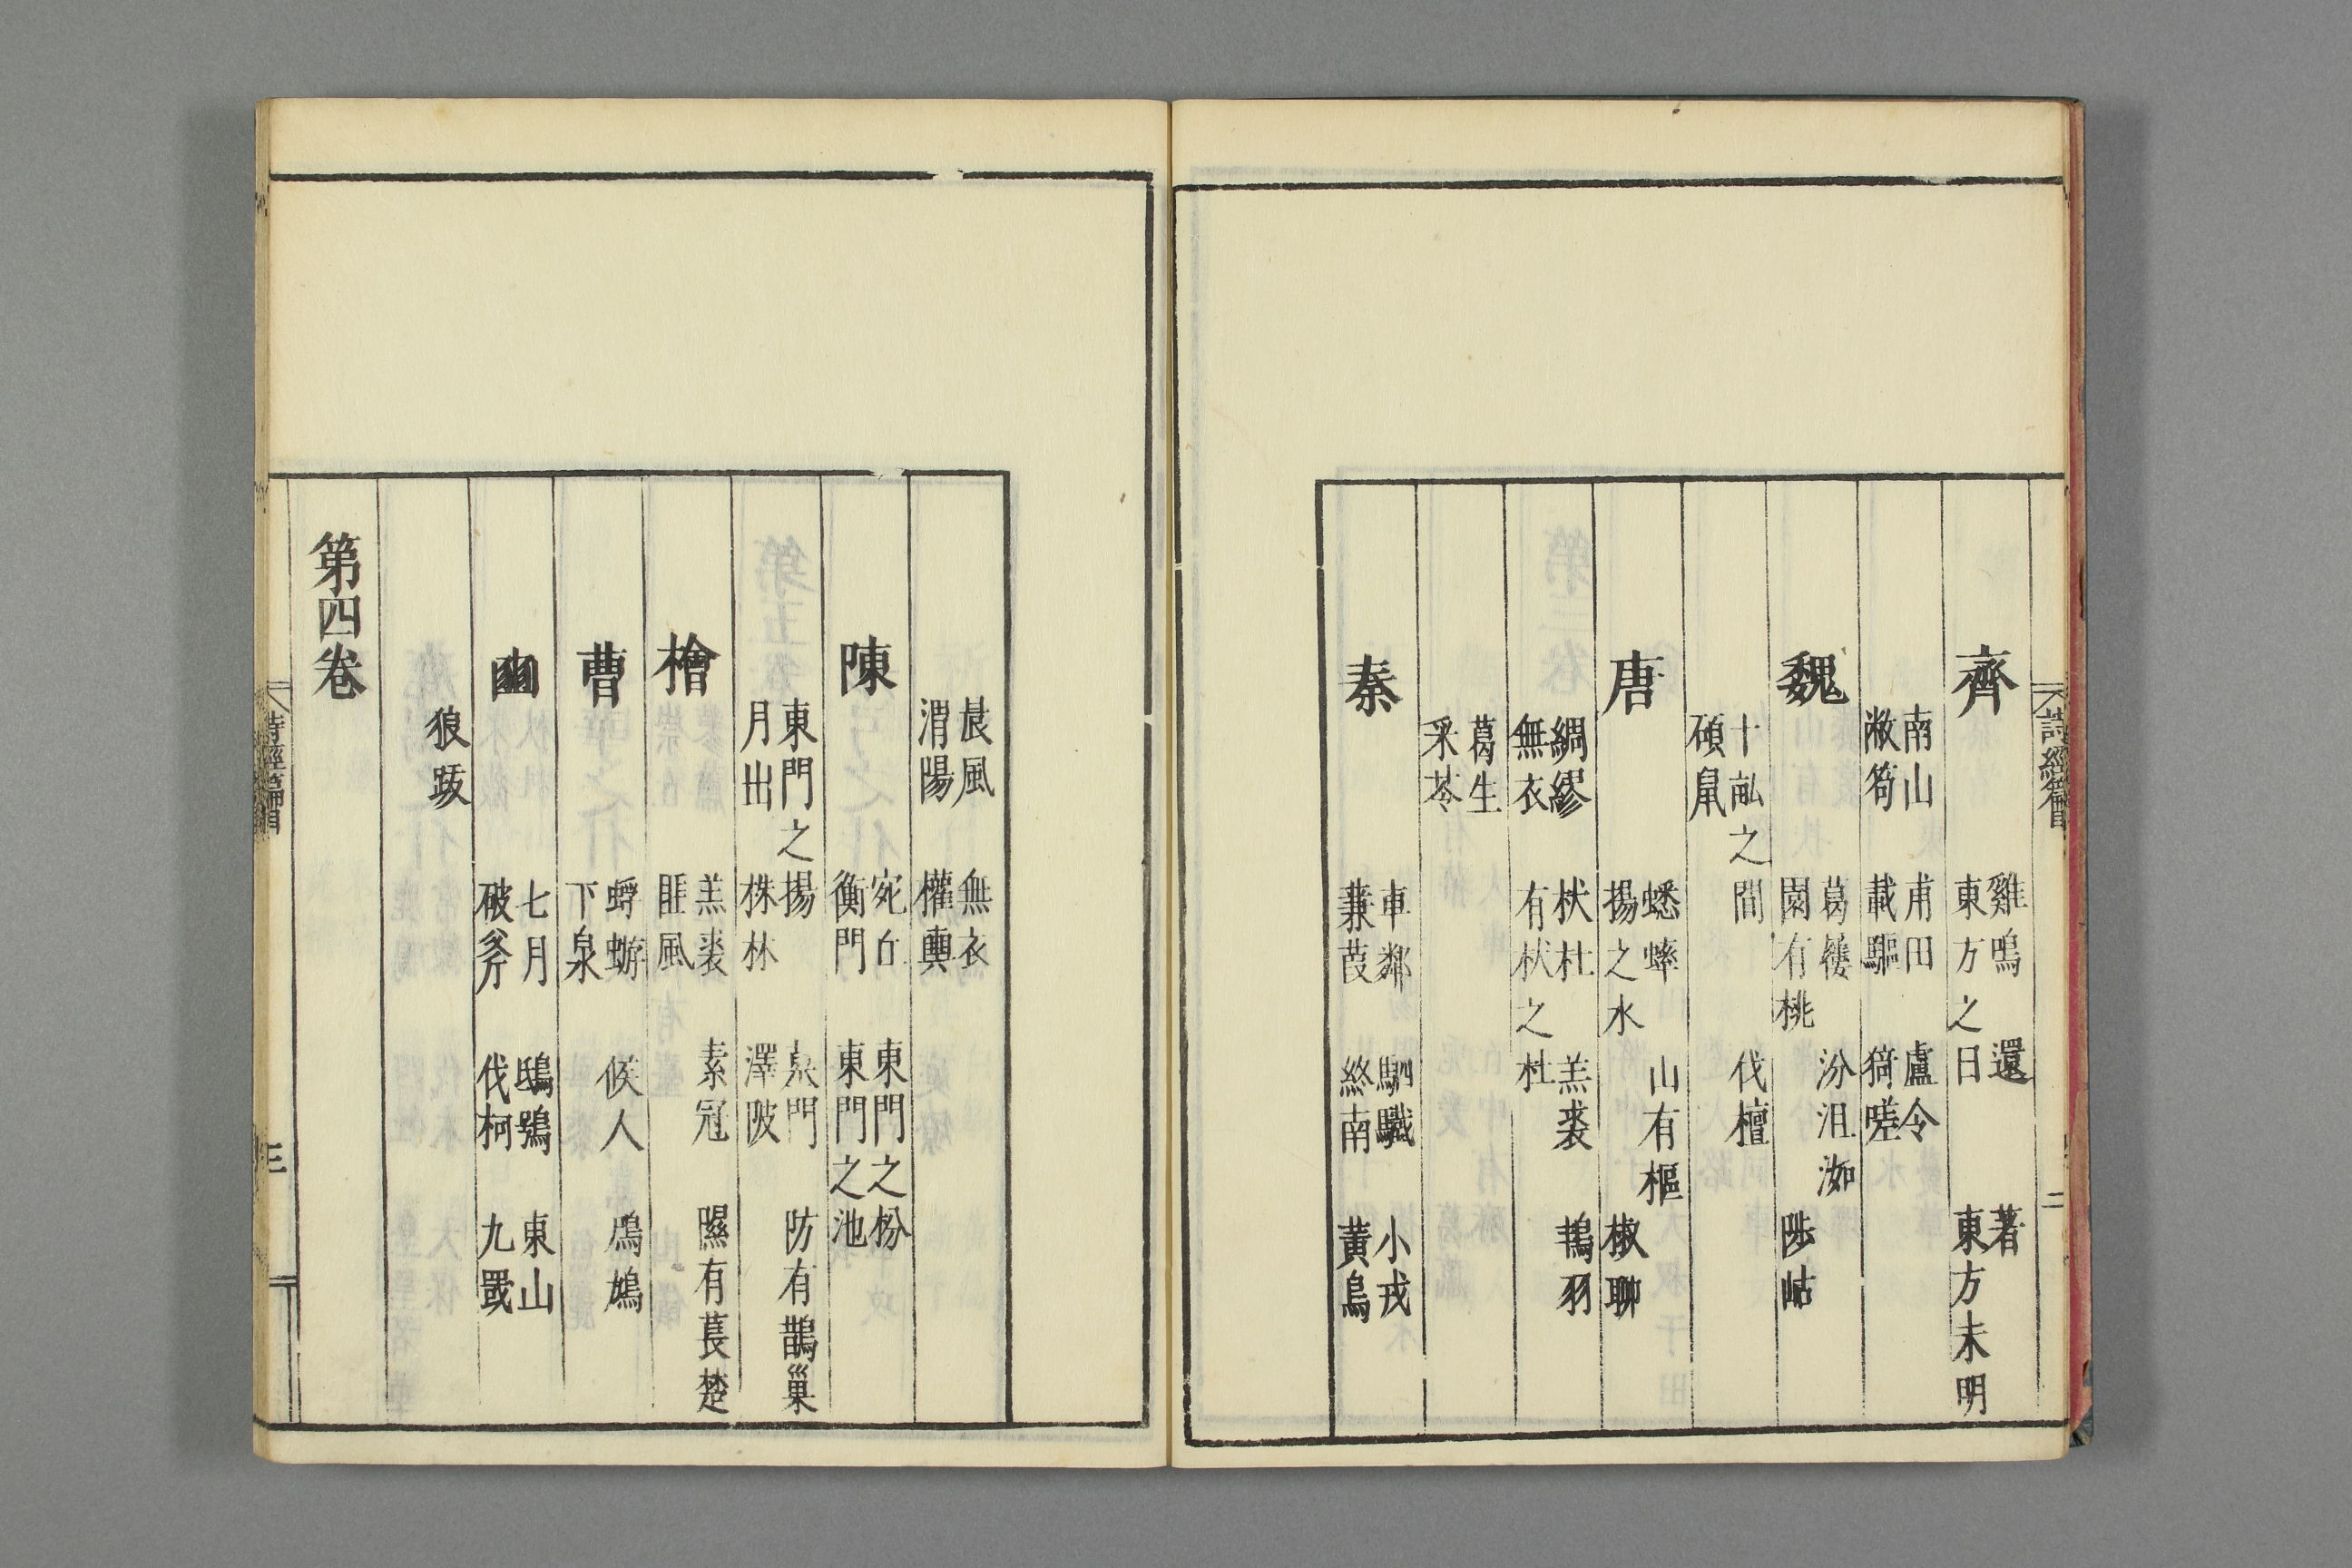 詩經篇目 二
齊
雞鳴 還 著
東方之日 東方未明
南山 甫田 盧令
敝笱 載驅 猗嗟
魏
葛屨 汾沮洳
園有桃 陟岵
十畝之間 伐檀
碩鼠
唐
蟋蟀 山有樞
揚之水 椒聊
綢繆 杕杜 羔裘 鴇羽
無衣 有杕之杜
葛生
采苓
秦
車鄰 駟驖 小戎
蒹葭 終南 黃鳥
晨風 無衣
渭陽 權輿
陳
宛丘 東門之枌
衡門 東門之池
東門之揚 門 防有鵲巢
月出 株林 澤陂
檜
羔裘 素冠 隰有萇楚
匪風
曹
蜉蝣 候人 鳲鳩
下泉
豳
七月 鴟鴞 東山
破斧 伐柯 九罭
狼跋
第四卷
詩經篇目 三